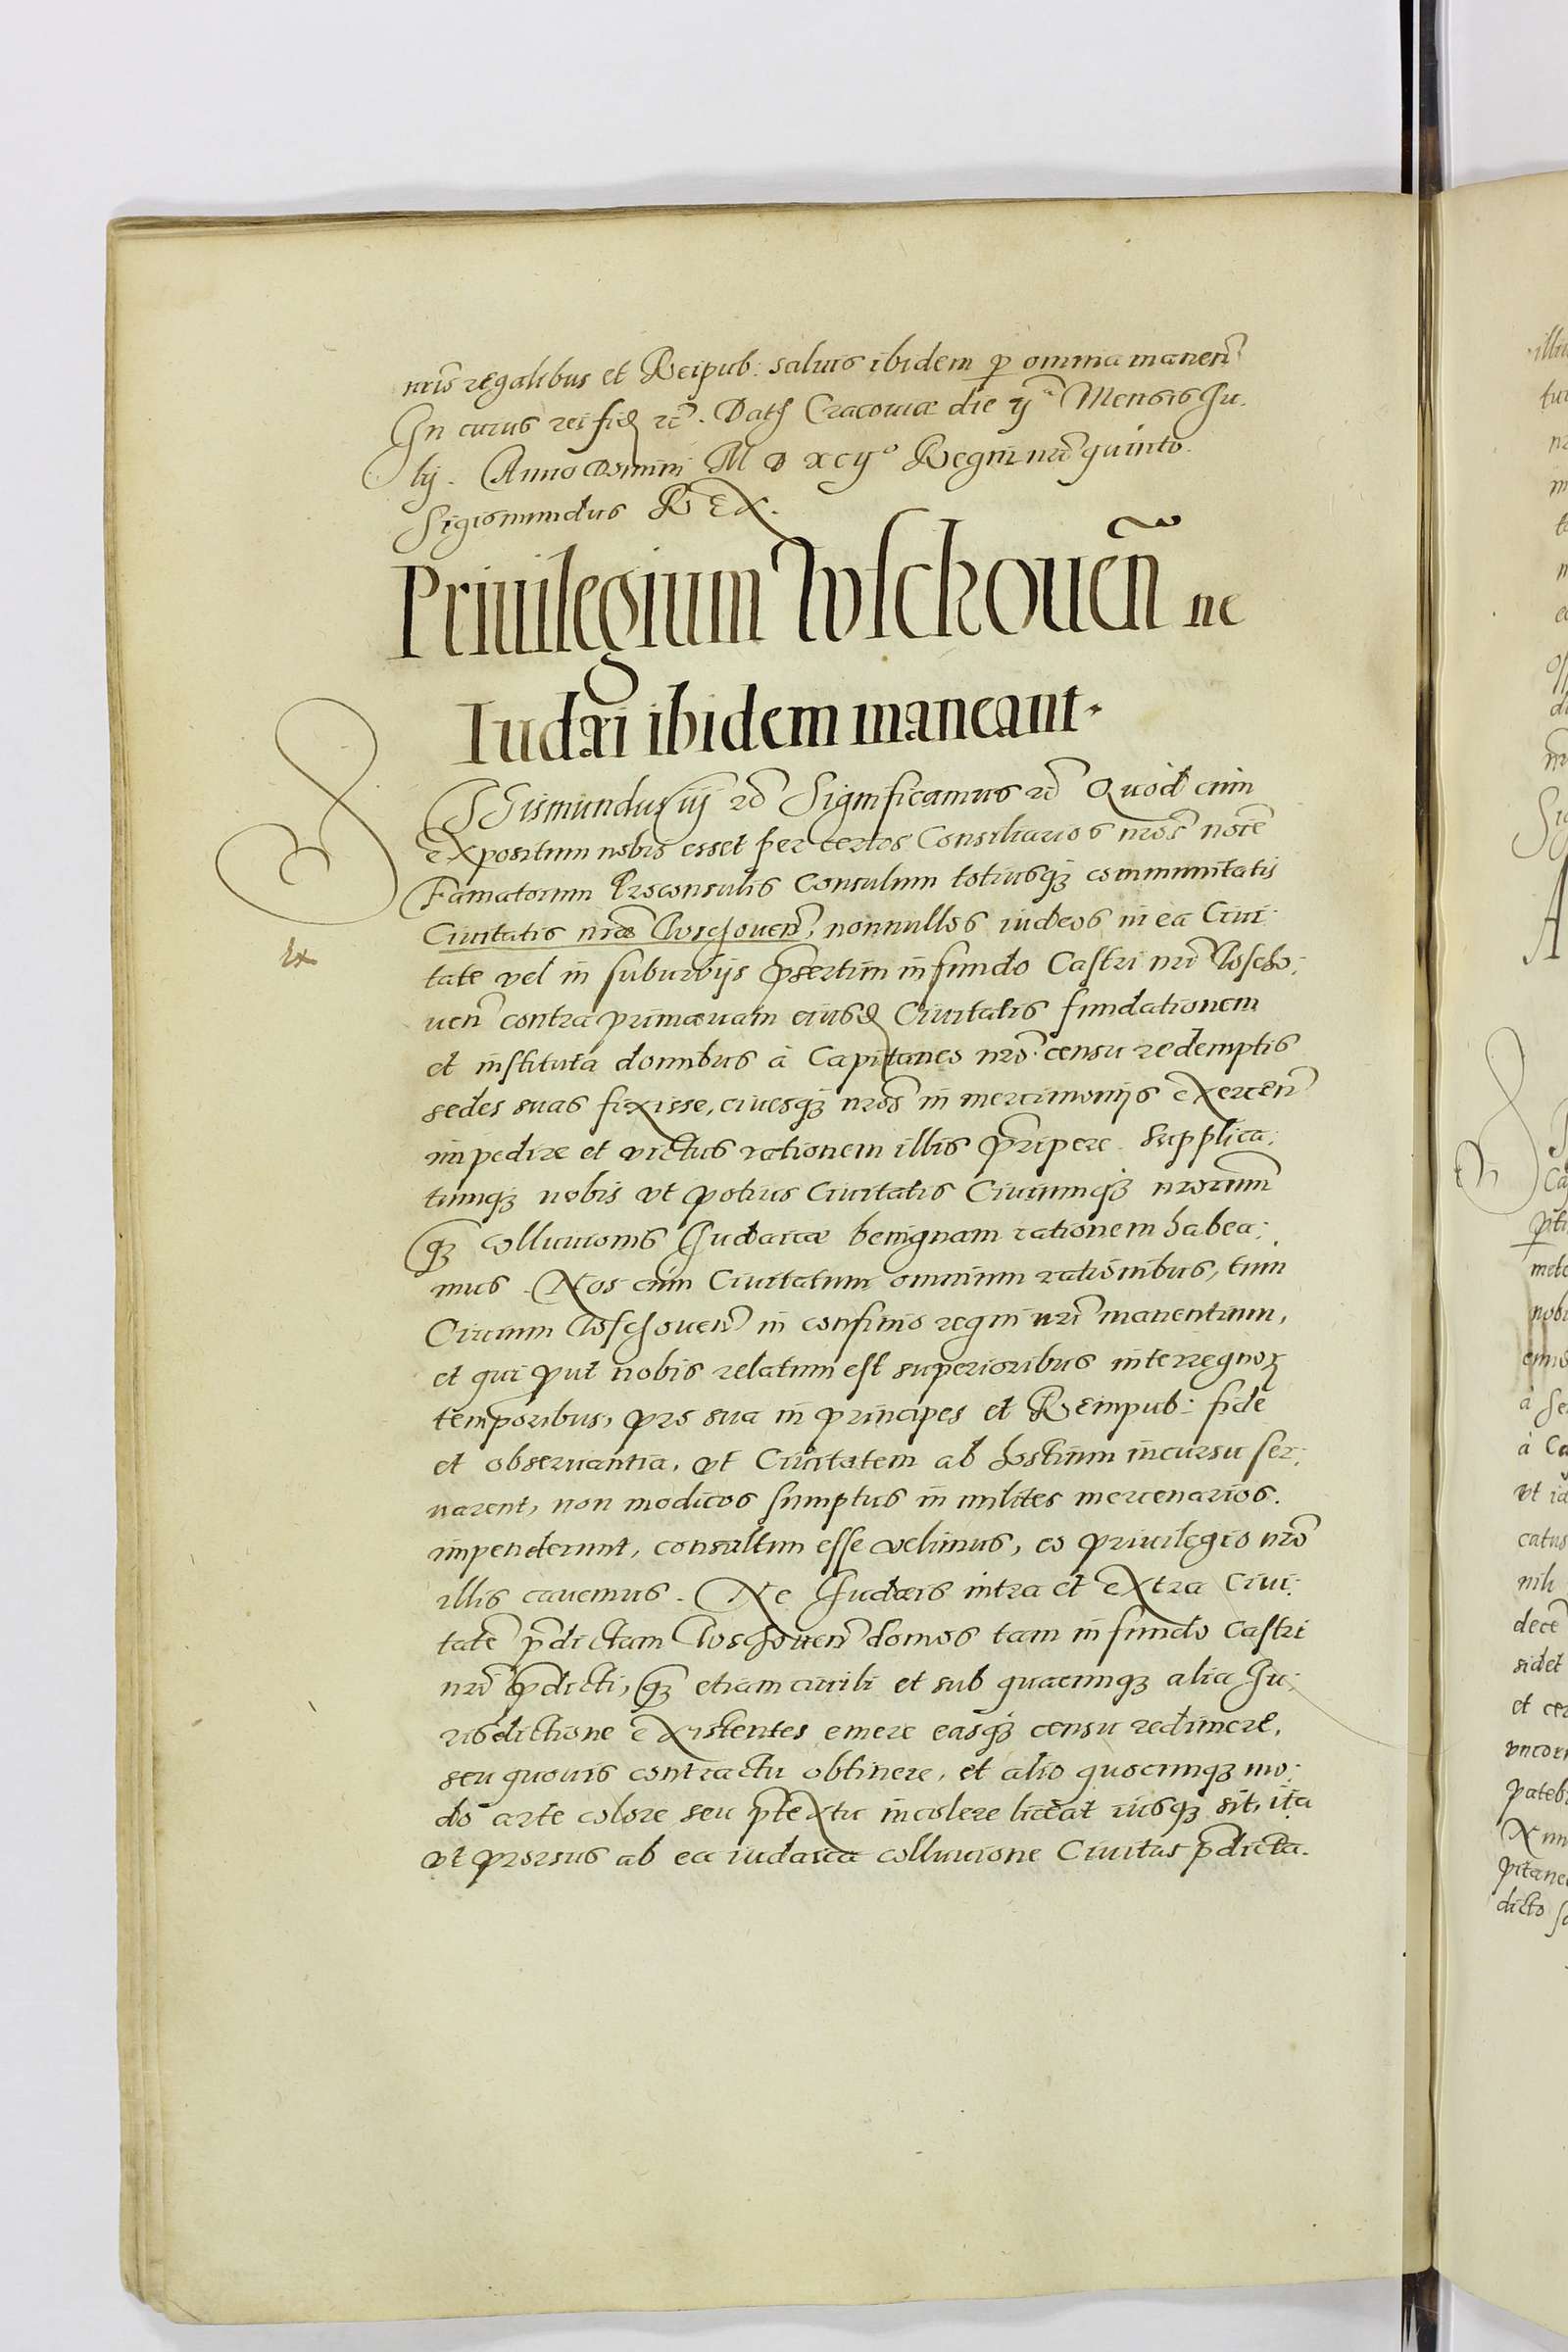 nris regalibus et Reipub: saluis ibidem p omnia manen̄
In cuius rei fidē rc̄. Datū Cracouiæ die ijᵃ Mensis Ju.
lij. Anno Domini M D xcijº Regni nrī quinto.
Sigismundus REX.
Priuilegium Wschouen̄ ne
Iudæi ibidem maneant.
Sigismundus iij rc̄ Significamus rc̄ Quod cum
expositum nobis esset per certos Consiliarios nros̄ noīe
Famatorum Proconsulis Consulum totiusqȝ communitatis
Ciuitatis nrǣ Wschouen̄, nonnullos iudeos in ea Ciui:
tate vel in suburbijs p̄sertim in fundo Castri nrī Wscho:
uen̄ contra primæuam eiusdē Ciuitatis fundationem
et instituta domibus à Capitaneo nrō censu redemptis
sedes suas fixisse, ciuesqȝ nros̄ in mercimonijs exercen̄
impedire et victus rationem illis p̄ripere. Supplica:
tumqȝ nobis vt potius Ciuitatis Ciuiumqȝ nrorum̄
qȝ colluuionis Judaicæ benignam rationem habea:
mus. Nos cum Ciuitatum omnium rationibus, tum
Ciuium Wschouen̄ in confinio regni nrī manentium,
et qui put nobis relatum est superioribus interregnoꝝ
temporibus, pro sua in principes et Rempub: fide
et obseruantia, vt Ciuitatem ab hostium incursu ser:
uarent, non modicos sumptus in milites mercenarios.
impenderunt, consultum esse velimus, eo priuilegio nrō
illis cauemus. Ne Judæis intra et extra Ciui:
tatē p̄dictam Wschouen̄ domos tam in fundo Castri
nrī p̄dicti, qȝ etiam ciuili et sub quacunqȝ alia Ju:
risdictione existentes emere easqȝ censu redimere,
seu quouis contractu obtinere, et alio quocunqȝ mo:
do arte colore seu p̄textu incolere liceat iusqȝ sit, ita
vt prorsus ab ea iudaica colluuione Ciuitas p̄dicta.